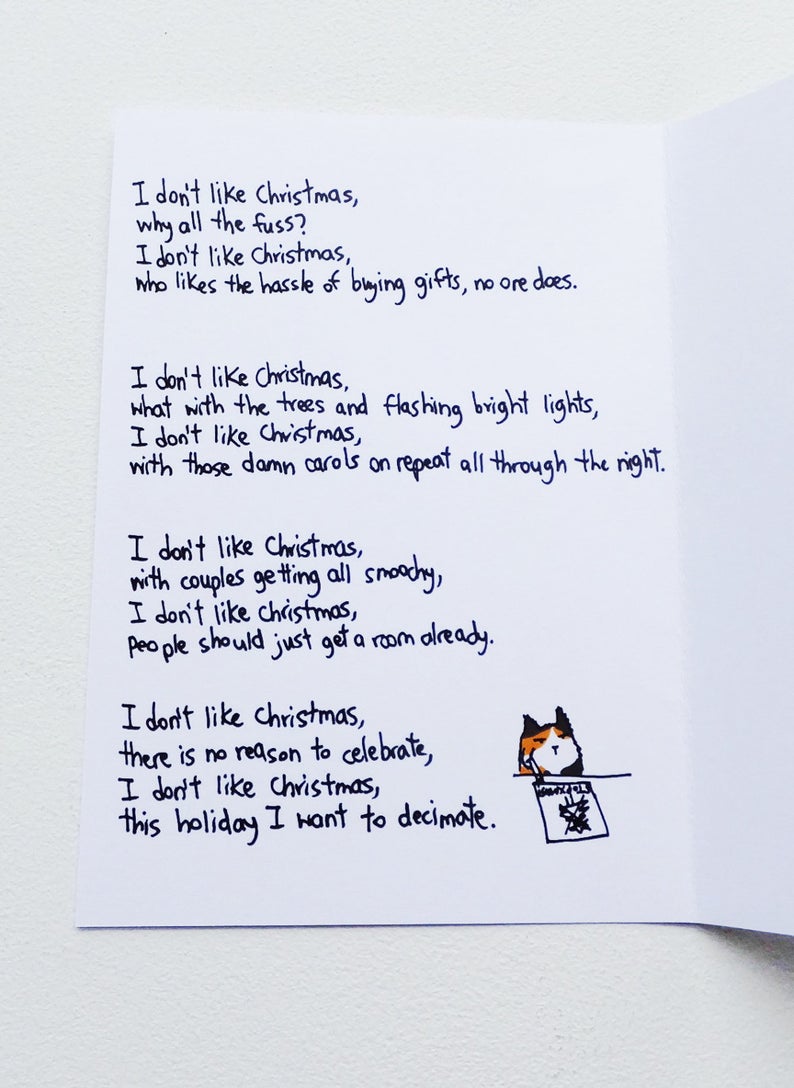 I don't like Christmas,
why all the fuss?
I don't like Christmas,
who likes the hassle of buying gifts, no one does.
I don't like Christmas,
what with the trees and flashing bright lights,
I don't like Christmas,
with those damn carols on repeat all through the night.
I don't like Christmas,
with couples getting all smoochy,
I don't like Christmas,
people should just get a room already.
I don't like Christmas,
there is no reason to celebrate,
I don't like Christmas,
this holiday I want to decimate.